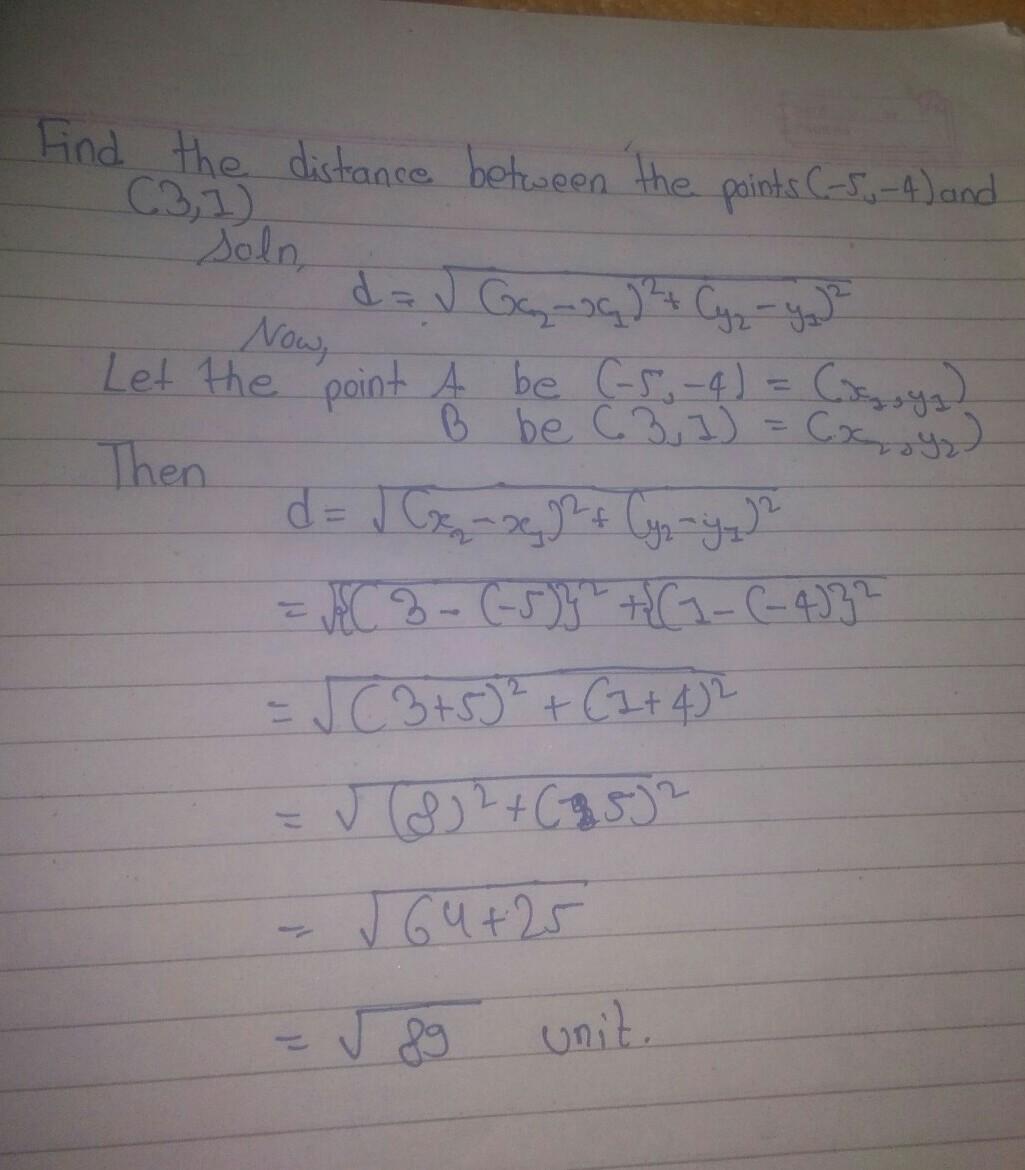 Find the distance between the points (-5, -4) and
(3,1)
Soln,
d = √(x₂-x₁)²+ (y₂-y₁)²
Now,
Let the point A be (-5, -4) = (x₁, y₁)
B be (3,1) = (x₂, y₂)
Then
d= √(x₂-x₁)²+ (y₂-y₁)²
= √{(3-(-5)}² +{(1-(-4)}²
= √(3+5)² + (1+4)²
= √(8)²+(5)²
= √64+25
= √89 unit.